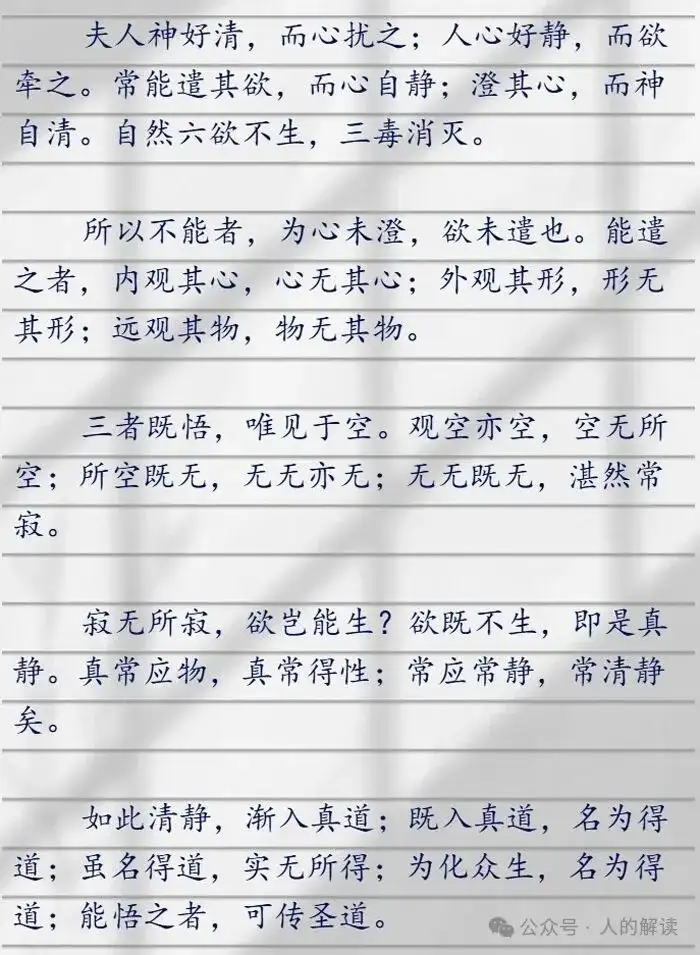 夫人神好清，而心扰之；人心好静，而欲
牵之。常能遣其欲，而心自静；澄其心，而神
自清。自然六欲不生，三毒消灭。
所以不能者，为心未澄，欲未遣也。能遣
之者，内观其心，心无其心；外观其形，形无
其形；远观其物，物无其物。
三者既悟，唯见于空。观空亦空，空无所
空；所空既无，无无亦无；无无既无，湛然常
寂。
寂无所寂，欲岂能生？欲既不生，即是真
静。真常应物，真常得性；常应常静，常清静
矣。
如此清静，渐入真道；既入真道，名为得
道；虽名得道，实无所得；为化众生，名为得
道；能悟之者，可传圣道。
公众号·人的解读